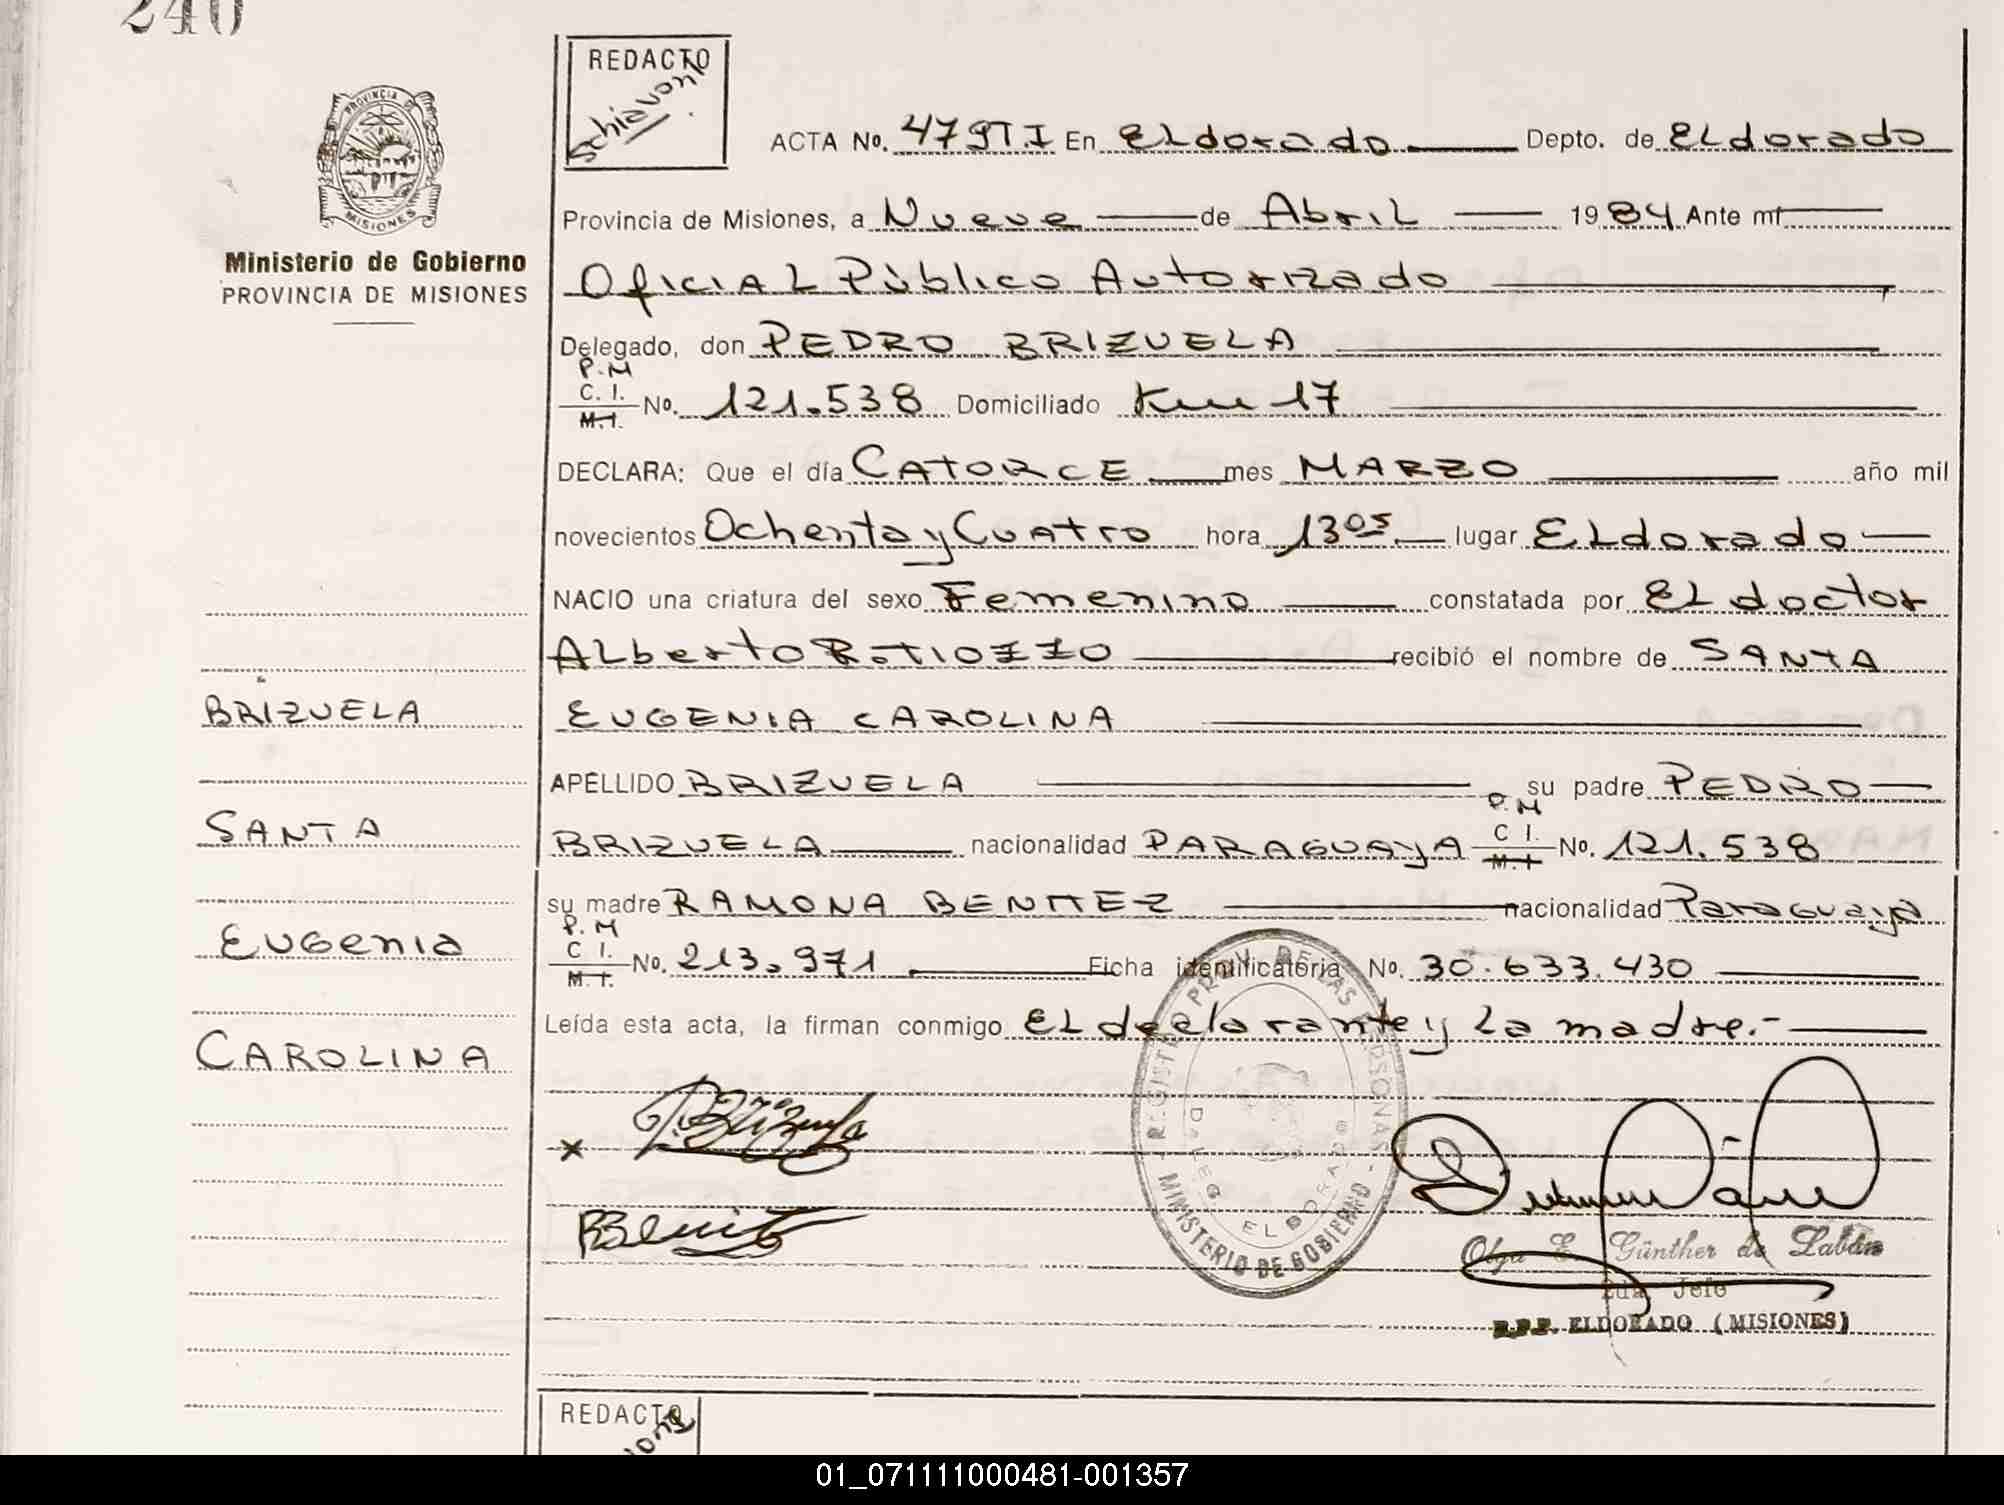 240
REDACTO
Schiavoni
PROVINCIA DE
MISIONES
Ministerio de Gobierno
PROVINCIA DE MISIONES
ACTA No. 479T.I En ELdorado Depto. de ELdorado
Provincia de Misiones, a Nueve de Abril 1984 Ante mí
Oficial Público Autorizado
Delegado, don PEDRO BRIZUELA
P.M
C. I.
M.I. No. 121.538 Domiciliado Km 17
DECLARA: Que el día CATORCE mes MARZO año mil
novecientos Ochenta y Cuatro hora 13 05 lugar ELdorado
NACIO una criatura del sexo Femenino constatada por EL doctor
ALberto recibió el nombre de SANTA
EUGENIA CAROLINA
APELLIDO BRIZUELA su padre PEDRO
BRIZUELA nacionalidad PARAGUAYA P.M C I. M.I No. 121.538
su madre RAMONA BENITEZ nacionalidad Paraguaya
P.M
C I.
M.I. No. 213.971 Ficha identificatoria No. 30.633.430
Leída esta acta, la firman conmigo EL declarante y La madre.-
BRIZUELA
SANTA
EUGENIA
CAROLINA
x P. Brizuela
RBenitez
REGISTRO PROV. DE LAS PERSONAS
DELEG. ELDORADO
MINISTERIO DE GOBIERNO
Olga E. Günther de Labán
2da. Jefe
R.P.P. ELDORADO (MISIONES)
REDACTO
01_071111000481-001357